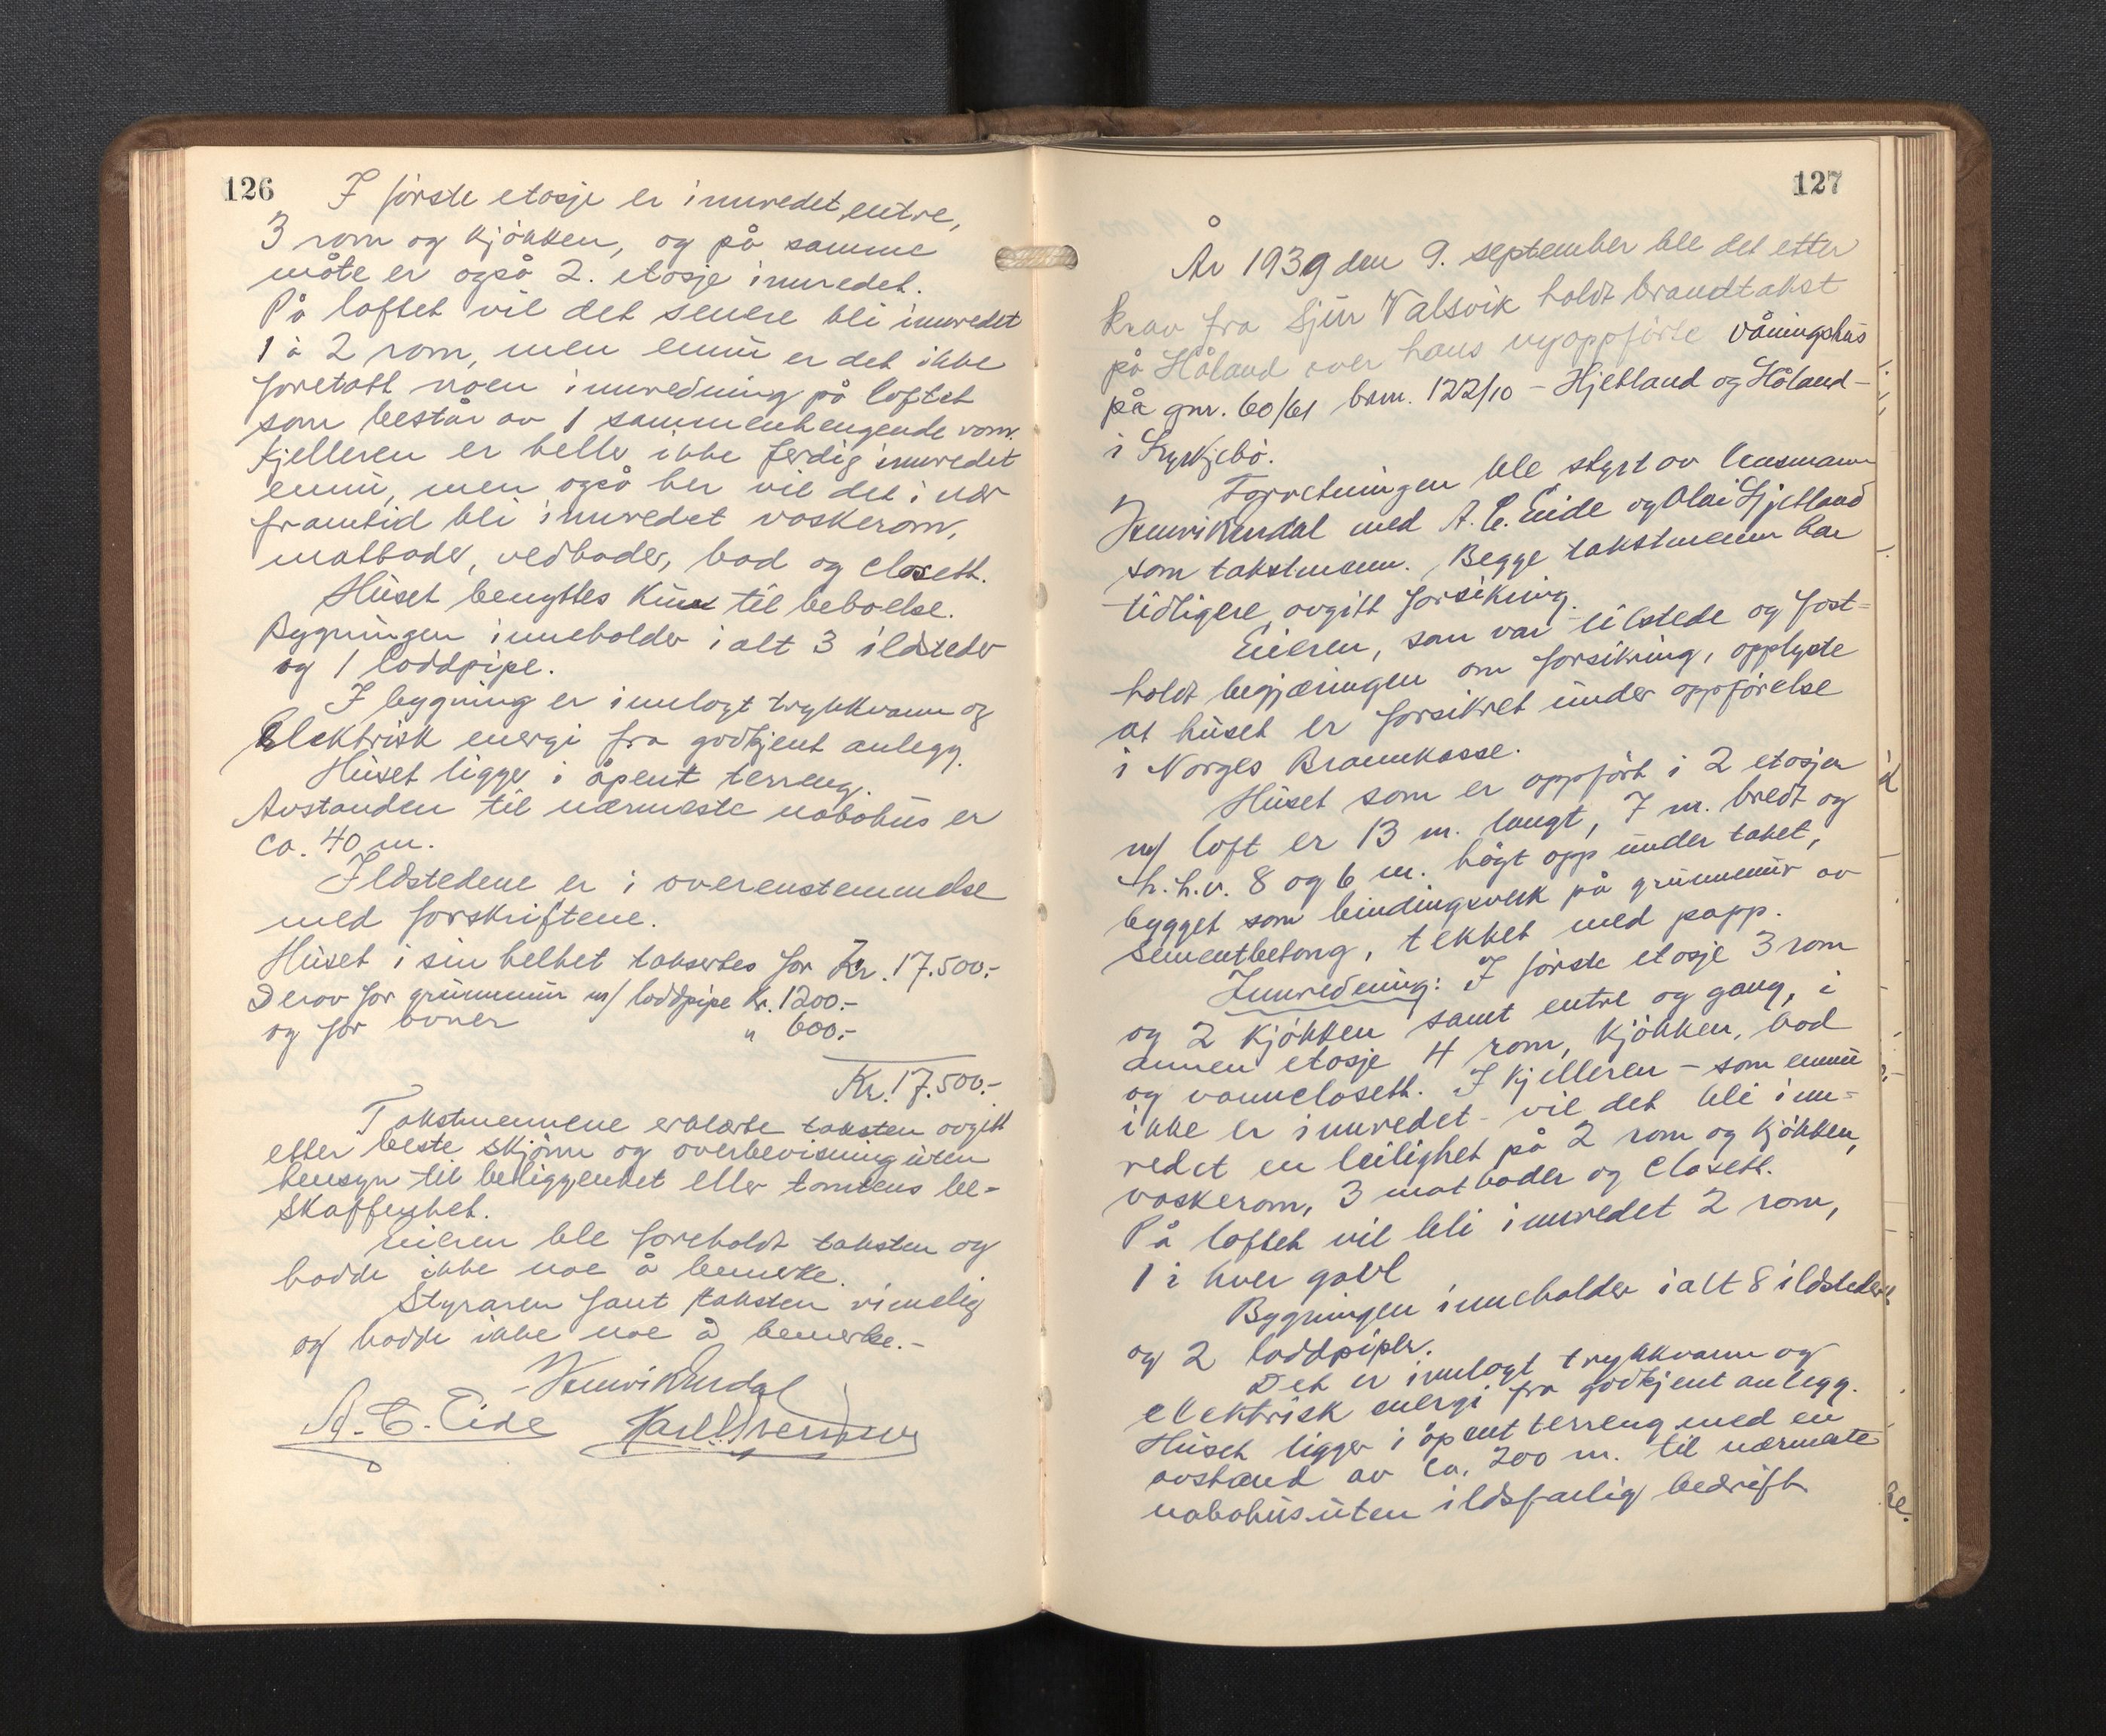 126
I förste etasje er innredet entre,
3 rom og kjökken, og på samme
måte er også 2. etasje innredet.
På loftet vil det senere bli innredet
1 à 2 rom, men ennu er det ikke
foretatt noen innredning på loftet
som består av 1 sammenhengende rom.
Kjelleren er heller ikke ferdig innredet
ennu, men også her vil det i nær
framtid bli innredet vaskerom,
matboder, vedboder, bad og closett.
Huset benyttes kun til beboelse.
Bygningen inneholder i alt 3 ildsteder
og 1 loddpipe.
I bygning er innlagt trykkvann og
Elektrisk energi fra godkjent anlegg.
Huset ligger i åpent terreng.
Avstanden til nærmeste nabohus er
ca. 40 m.
Ildstedene er i overenstemmelse
med forskriftene.
Huset i sin helhet taksertes for Kr. 17.500.-
Derav for grunnmur m/ loddpipe Kr. 1200.-
og for ovner " 600.-
Kr. 17.500.-
Takstmennene erklærte taksten avgitt
etter beste skjönn og overbevisning uten
hensyn til beliggenhet eller tomtens be-
skaffenhet.
Eieren ble foreholdt taksten og
hadde ikke noe å bemerke.
Styraren fant taksten rimelig
og hadde ikke noe å bemerke.-
A. E. Eide
127
År 1939 den 9. september ble det etter
krav fra Sjur Valsvik holdt branntakst
på Håland over hans nyoppförte våningshus
på gnr. 60/61 bnr. 122/10 - Hjetland og Håland -
i Lyrkjebö.
Forretningen ble styrt av lensmann
Henrik Endal med A. E. Eide og Olai Hjetland
som takstmenn. Begge takstmenn har
tidligere avgitt forsikring.
Eieren, som var tilstede og fast-
holdt begjæringen om forsikring, opplyste
at huset er forsikret under oppförelse
i Norges Brannkasse.
Huset som er oppfört i 2 etasjer
m/ loft er 13 m. langt, 7 m. bredt og
h.h.v. 8 og 6 m. högt opp under taket,
bygget som bindingsverk på grunnmur av
sementbetong, tekket med papp.
Innredning: I förste etasje 3 rom
og 2 kjökken samt entre og gang, i
annen etasje 4 rom, kjökken, bad
og vanncloset. I kjelleren - som ennu
ikke er innredet - vil det bli inn-
redet en leilighet på 2 rom og kjökken,
vaskerom, 3 matboder og closett.
På loftet vil bli innredet 2 rom,
1 i hver gavl
Bygningen inneholder i alt 8 ildsteder
og 2 loddpiper.
Det er innlagt trykkvann og
elektrisk energi fra godkjent anlegg.
Huset ligger i åpent terreng med en
avstand av ca. 200 m. til nærmeste
nabohus uten ildsfarlig bedrift